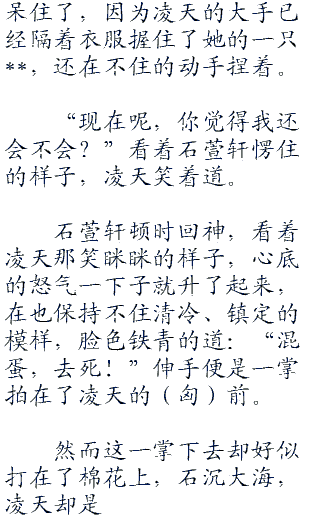 呆住了，因为凌天的大手已
经隔着衣服握住了她的一只
**，还在不住的动手捏着。
“现在呢，你觉得我还
会不会？”看着石萱轩愣住
的样子，凌天笑着道。
石萱轩顿时回神，看着
凌天那笑眯眯的样子，心底
的怒气一下子就升了起来，
在也保持不住清冷、镇定的
模样，脸色铁青的道：“混
蛋，去死！”伸手便是一掌
拍在了凌天的（匈）前。
然而这一掌下去却好似
打在了棉花上，石沉大海，
凌天却是